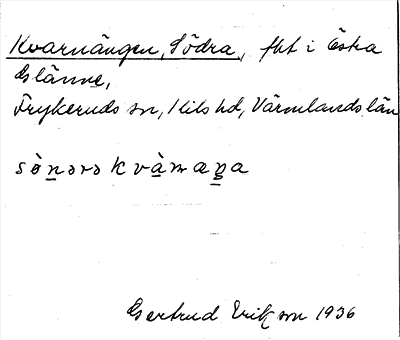 Kvarnängen, Södra, fht i Östra
Eslänne,
Frykeruds sn, Kils hd, Värmlands län
sǜn̠ərə kvàmaŋa
Gertrud Erikson 1936